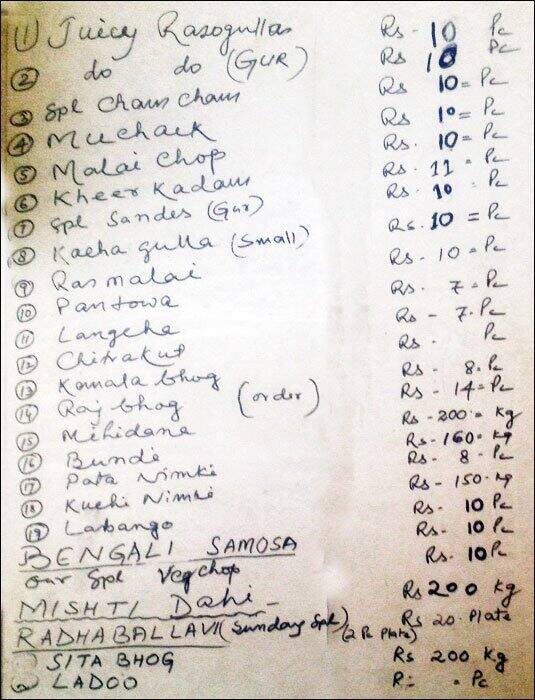 ① Juicy Rasogullas Rs - 10 Pc
② do do (GUR) Rs 10 Pc
③ Spl Cham Cham Rs 10 = Pc
④ Muchaek Rs 10 = Pc
⑤ Malai Chop Rs. 10 = Pc
⑥ Kheer Kadam Rs. 11 - Pc
⑦ Spl Sandes (Gur) Rs. 10 Pc
⑧ Kacha gulla (Small) Rs. 10 = Pc
⑨ Rasmalai Rs - 10 = Pc
⑩ Pantowa Rs. 7 = Pc
⑪ Langcha Rs - 7. Pc
⑫ Chitrakut Rs - Pc
⑬ Kamala bhog Rs. 8. Pc
⑭ Raj bhog (order) Rs - 14 = Pc
⑮ Mihidana Rs - 200 = kg
⑯ Bundi Rs - 160 = kg
⑰ Pata Nimki Rs - 8 - Pc
⑱ Kuchi Nimki Rs - 150 - kg
⑲ Labango Rs - 10 Pc
BENGALI SAMOSA Rs - 10 Pc
our Spl Veg chop Rs - 10 Pc
MISHTI Dahi - Rs 200 kg
RADHABALLAVI (Sunday Spl) (2 Pc Plate) Rs 20. Plate
SITA BHOG Rs 200 Kg
LADOO Pc